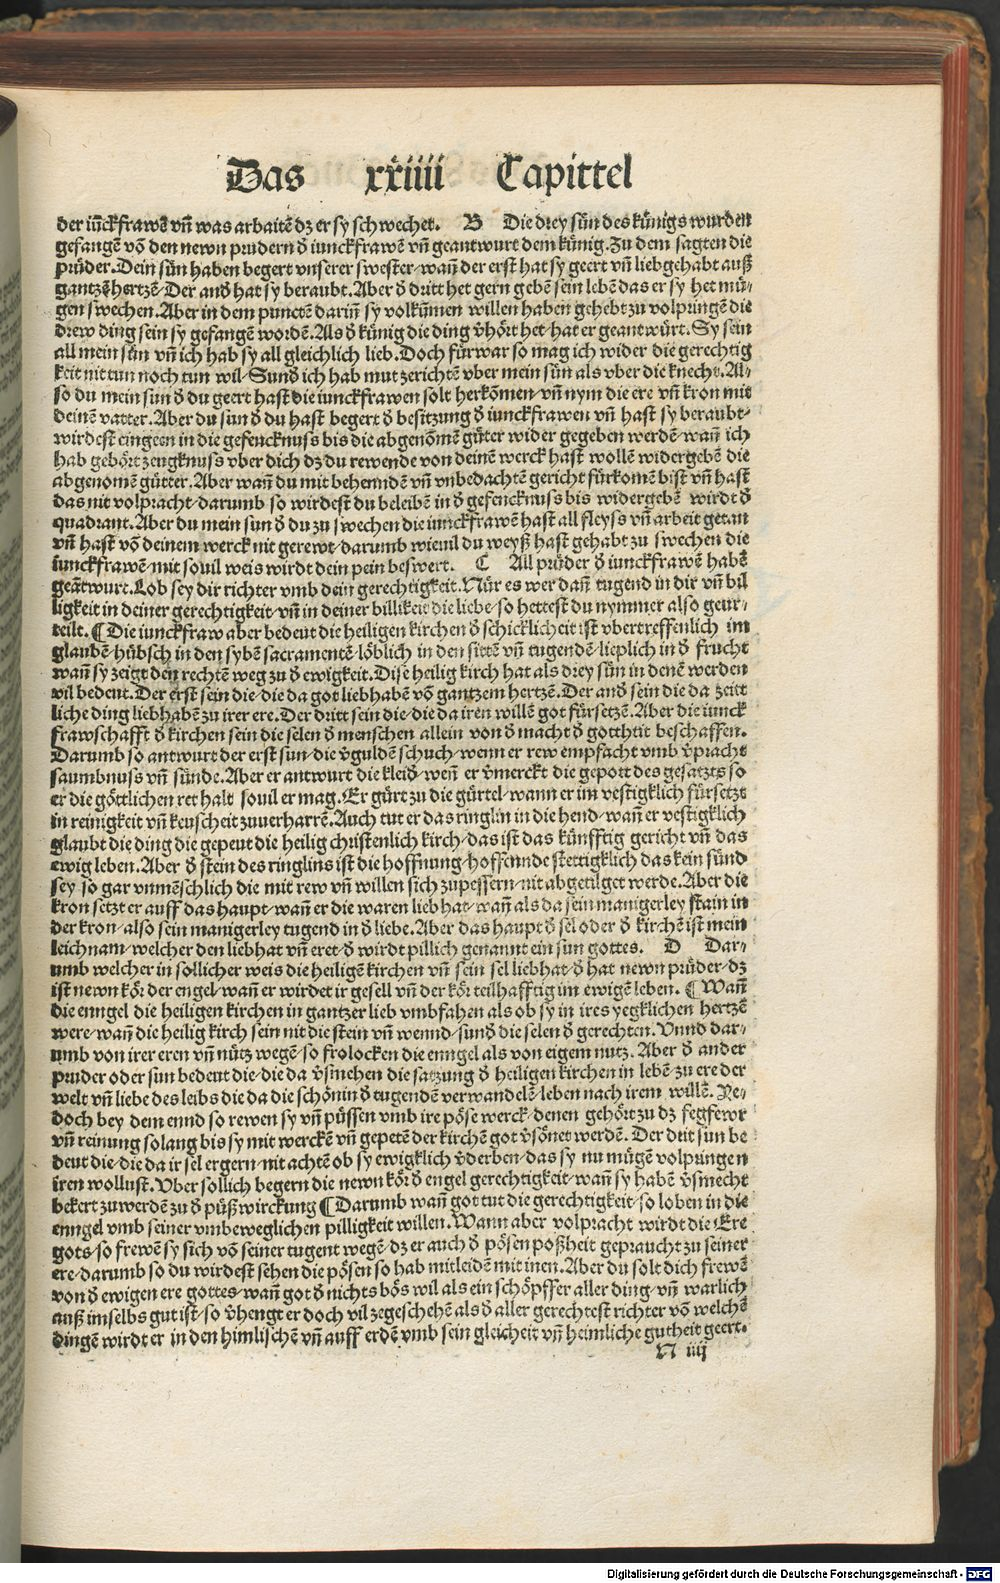 Das xxiiii Capittel
der iũckfrawẽ vñ was arbaitẽ dz er sy schwechet. B Die drey sün des künigs wurden
gefangẽ võ den newn prudern d̕ iunckfrawẽ vñ geantwurt dem künig. Zu dem sagten die
prüder. Dein sün haben begert vnserer swester/wañ der erst hat sy geert vñ liebgehabt auß
gantzẽ hertzẽ/Der and̕ hat sy beraubt. Aber d̕ dritt het gern gebẽ sein lebẽ das er sy het mü⸗
gen swechen. Aber in dem punctẽ dariñ sy volkũmen willen haben gehebt zu volpringẽ die
drew ding sein sy gefangẽ wordẽ. Als d̕ künig die ding v̕hört het/hat er geantwürt. Sy sein
all mein sün vñ ich hab sy all gleichlich lieb. Doch fürwar so mag ich wider die gerechtig
keit nit tun noch tun wil/Sund̕ ich hab mut zerichtẽ vber mein sün als vber die knecht. Al⸗
so du mein sun d̕ du geert hast die iunckfrawen solt herkõmen/vñ nym die ere vñ kron mit
deinẽ vatter. Aber du sun d̕ du hast begert d̕ besitzung d̕ iunckfrawen vñ hast sy beraubt/
wirdest eingeen in die gefencknuss bis die abgenõmẽ güter wider gegeben werdẽ/wañ ich
hab gehört zeugknuss vber dich dz du rewende von deinẽ werck hast wollẽ widergebẽ die
abgenomẽ gütter. Aber wañ du mit behenndẽ vñ vnbedachtẽ gericht fürkomẽ bist vñ hast
das nit volpracht/darumb so wirdest du beleibẽ in d̕ gefencknuss bis widergebẽ wirdt d̕
quadrant. Aber du mein sun d̕ du zu swechen die iunckfrawẽ hast all fleyss vñ arbeit getan
vñ hast võ deinem werck nit gerewt/darumb wieuil du weyß hast gehabt zu swechen die
iunckfrawẽ/mit souil weis wirdt dein pein beswert. C All prüder d̕ iunckfrawẽ habẽ
geãtwurt. Lob sey dir richter vmb dein gerechtigkeit. Nür es wer dañ tugend in dir vñ bil
ligkeit in deiner gerechtigkeit/vñ in deiner billikeit die liebe/so hettest du nymmer also geur⸗
teilt. ¶ Die iunckfraw aber bedeut die heiligen kirchen d̕ schicklicheit ist vbertreffenlich im
glaubẽ/hübsch in den sybẽ sacramentẽ/löblich in den sittẽ vñ tugendẽ/lieplich in d̕ frucht
wañ sy zeigt den rechtẽ weg zu d̕ ewigkeit. Dise heilig kirch hat als drey sün in denẽ werden
vil bedeut. Der erst sein die/die da got liebhabẽ võ gantzem hertzẽ. Der and̕ sein die da zeitt
liche ding liebhabẽ zu irer ere. Der dritt sein die/die da iren willẽ got fürsetzẽ. Aber die iunck
frawschafft d̕ kirchen sein die selen d̕ menschen allein von d̕ macht d̕ gotthtit beschaffen.
Darumb so antwurt der erst sun/die v̕guldẽ schuch/wenn er rew empfacht vmb v̕pracht
saumbnuss vñ sünde. Aber er antwurt die kleid̕/weñ er v̕merckt die gepott des gesatzts so
er die göttlichen ret halt souil er mag. Er gürt zu die gürtel/wann er im vestigklich fürsetzt
in reinigkeit vñ keuscheit zuuerharrẽ. Auch tut er das ringlin in die hend/wañ er vestigklich
glaubt die ding die gepeut die heilig christenlich kirch/das ist das künfftig gericht vñ das
ewig leben. Aber d̕ stein des ringlins ist die hoffnung/hoffennde stettigklich das kein sünd
sey so gar vnmẽschlich die mit rew vñ willen sich zupessern/nit abgetilget werde. Aber die
kron setzt er auff das haupt/wañ er die waren lieb hat/wañ als da sein manigerley stain in
der kron/also sein manigerley tugend in d̕ liebe. Aber das haupt d̕ sel oder d̕ kirchẽ ist mein
leichnam/welcher den liebhat vñ eret/d̕ wirdt pillich genannt ein sun gottes. D Dar⸗
umb welcher in sollicher weis die heiligẽ kirchen vñ sein sel liebhat/d̕ hat newn prüder/dz
ist newn kör der engel/wañ er wirdet ir gesell vñ der kör teilhafftig im ewigẽ leben. ¶ Wañ
die enngel die heiligen kirchen in gantzer lieb vmbfahen als ob sy in ires yegklichen hertzẽ
were/wañ die heilig kirch sein nit die stein vñ wennd/sund̕ die selen d̕ gerechten. Vnnd dar⸗
umb von irer eren vñ nütz wegẽ/so frolocken die enngel als von eigem nutz. Aber d̕ ander
pruder oder sun bedeut die/die da v̕smehen die satzung d̕ heiligen kirchen in lebẽ zu ere der
welt vñ liebe des leibs die da die schönin d̕ tugendẽ verwandelẽ/leben nach irem willẽ. Ye⸗
doch bey dem ennd so rewen sy vñ püssen vmb ire pöse werck/denen gehört zu dz fegfewr
vñ reinung solang bis sy mit werckẽ vñ gepetẽ der kirchẽ got v̕sönet werdẽ. Der drit sun be
deut die/die da ir sel ergern/nit achtẽ ob sy ewigklich v̕derben/das sy nu mügẽ volpringen
iren wollust. Vber sollich begern die newn kör d̕ engel gerechtigkeit/wañ sy habẽ v̕smecht
bekert zuwerdẽ zu d̕ püßwirckung ¶ Darumb wañ got tut die gerechtigkeit/so loben in die
enngel vmb seiner vnbeweglichen pilligkeit willen. Wann aber volpracht wirdt die Ere
gots/so frewẽ sy sich võ seiner tugent wegẽ/dz er auch d̕ pösen poßheit gepraucht zu seiner
ere/darumb so du wirdest sehen die pösen so hab mitleidẽ mit inen. Aber du solt dich frewẽ
von d̕ ewigen ere gottes/wañ got d̕ nichts bös wil als ein schöpffer aller ding/vñ warlich
auß imselbs gut ist/so v̕hengt er doch vil zegeschehẽ als d̕ aller gerechtest richter võ welchẽ
dingẽ wirdt er in den himlischẽ vñ auff erdẽ vmb sein gleicheit vñ heimliche gutheit geert.
N iiij
Digitalisierung gefördert durch die Deutsche Forschungsgemeinschaft - DFG